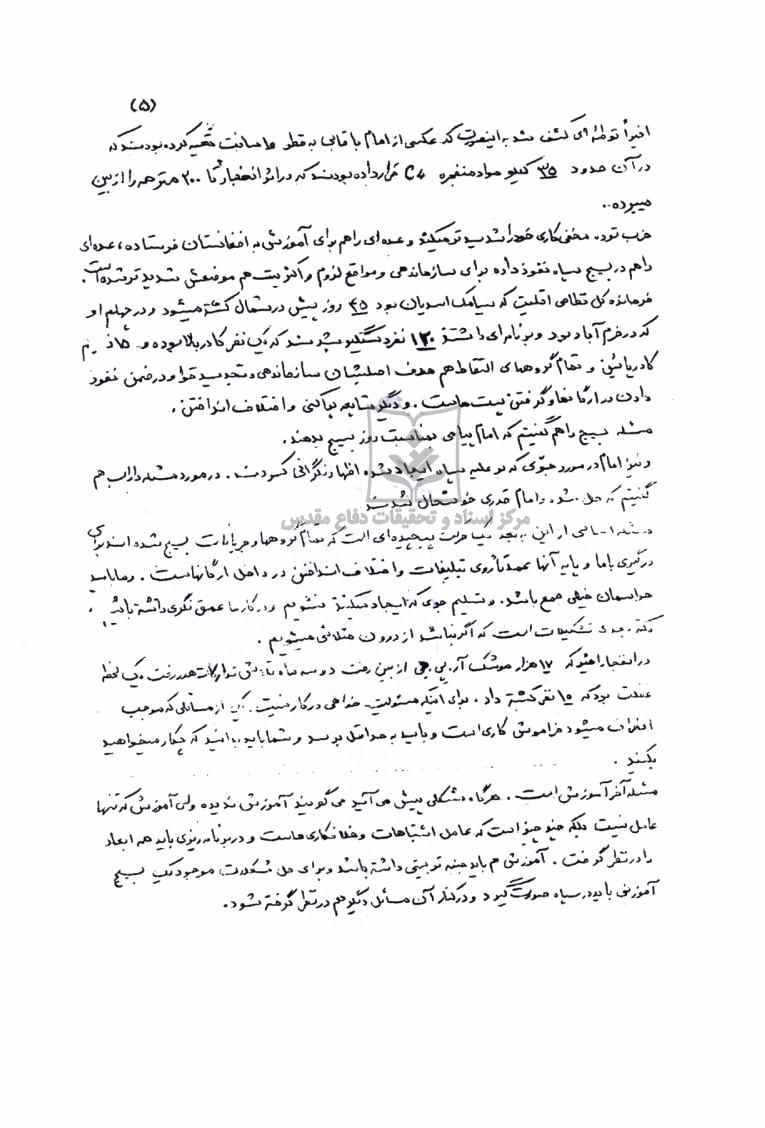 (۵)
اخیراً توطئه‌ای کشف شد به اینصورت که عکسی از امام با قابی به قطر ۱۰ سانت تهیه کرده بودند که
در آن حدود ۳۵ کیلو مواد منفجره C4 قرار داده بودند که در اثر انفجار تا ۲۰۰ متر همه را از بین
میبرده.
حزب توده مخفی کاری خود را شدیدتر میکند و عده‌ای را هم برای آموزش به افغانستان فرستاده، عده‌ای
را هم در بسیج سپاه نفوذ داده برای سازماندهی و مواقع لزوم و اکثریت هم موضعش شدیدتر شده است.
فرمانده کل نظامی اقلیت که سیامک اسدیان بود ۴۵ روز پیش در شمال کشته میشود و در چهلم او
که در خرم آباد بود و برنامه‌ای داشتند ۱۲۰ نفر دستگیر شدند که یک نفر کادر بالا بوده و ۱۵ نفر
کادر پائین و تمام گروههای التقاط هم هدف اصلیشان سازماندهی و تجدید قوا و در ضمن نفوذ
دادن در ارگانها و گرفتن پست هاست. و دیگر شایعه پراکنی و اختلاف انداختن.
مسئله بسیج را هم گفتیم که امام پیامی بمناسبت روز بسیج بدهند.
و نیز امام در مورد جوّی که بر علیه سپاه ایجاد شده اظهار نگرانی کردند. در مورد مسئله داراب هم
گفتیم که حل شده و امام قدری خوشحال شدند
مرکز اسناد و تحقیقات دفاع مقدس
مسئله اساسی از این ببعد یک حرکت پیچیده‌ای است که تمام گروهها و جریانات بسیج شده اند برای
درگیری با ما و پایه آنها عمدتاً روی تبلیغات و اختلاف انداختن در داخل ارگانهاست. و ما باید
حواسمان خیلی جمع باشد. و تسلیم جوی که ایجاد میکنند نشویم و در کارها عمق نگری داشته باشیم.
نکته بعدی تشکیلات است که اگر نباشد از درون متلاشی میشویم.
در انفجار اهواز که ۱۷ هزار موشک آر.پی.جی از بین رفت دو سه ماه تدارکات هدر رفت یک لحظه
غفلت بود که ۱۵ نفر کشته داد. برای اینکه مسئولیت خواهی در کار نیست. یکی از مسائلی که موجب
انحراف میشود فراموش کاری است و باید به حداقل برسد و شما باید بدانید که چکار میخواهید
بکنید.
مسئله آخر آموزش است. هرگاه مشکلی پیش می آید می گویند آموزش ندیده ولی آموزش که تنها
عامل نیست بلکه چند چیز است که عامل اشتباهات و خلافکاری هاست و در برنامه ریزی باید همه ابعاد
را در نظر گرفت. آموزش هم باید جنبه تربیتی داشته باشد و برای حل مشکلات موجود یک بسیج
آموزشی باید در سپاه صورت گیرد و در کنار آن مسائل دیگر هم در نظر گرفته شود.